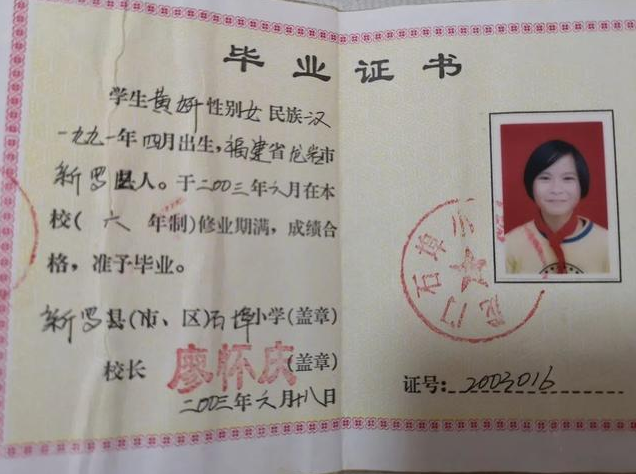 毕业证书
学生黄妍性别女民族汉
一九九一年四月出生，福建省龙岩市
新罗县人。于二00三年六月在本
校（六年制）修业期满，成绩合
格，准予毕业。
新罗县（市、区）石埠小学（盖章）
校长 廖怀庆（盖章）
二00三年六月十八日
龙门石埠
证号：2003016